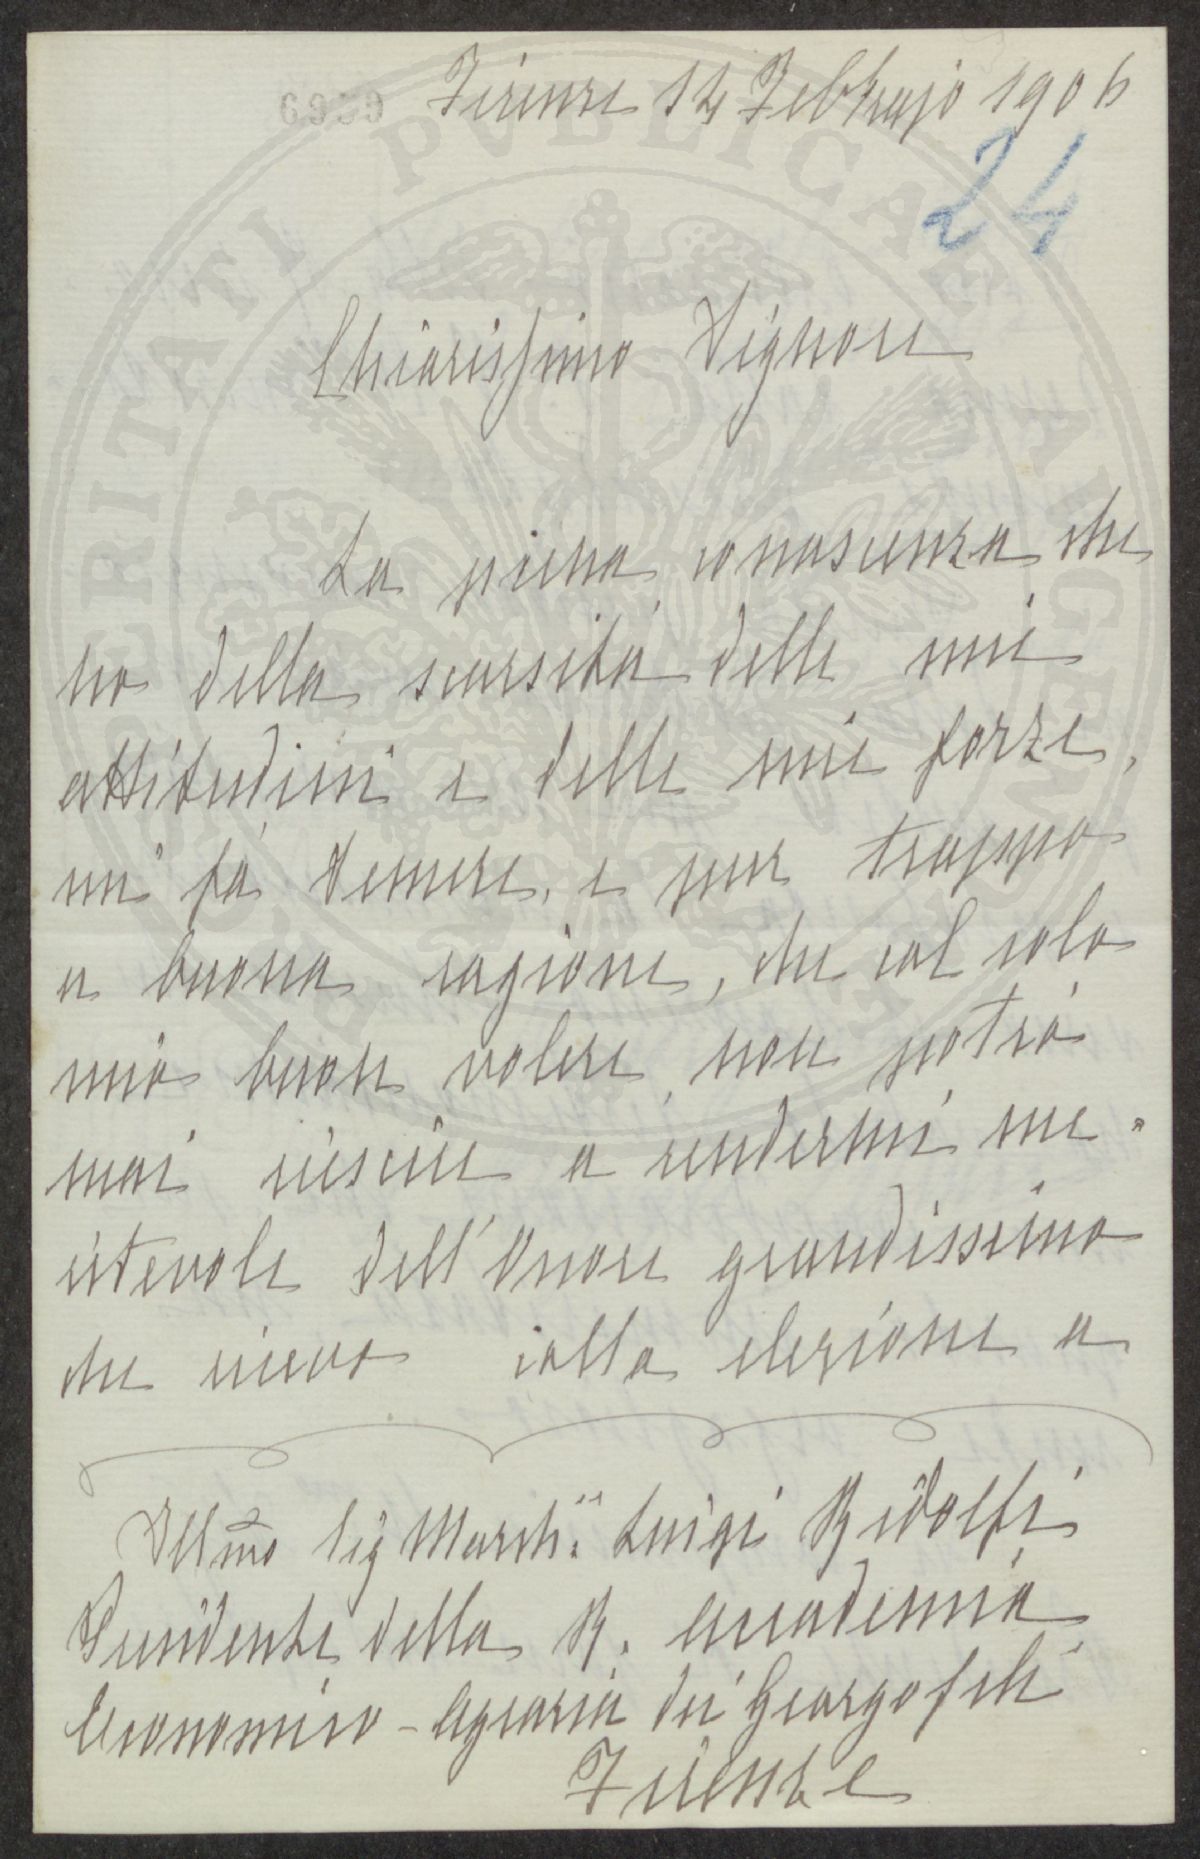 Firenze 14 Febbrajo 1906
24
Chiarissimo Signore
La piena conoscenza che
ho della scarsità delle mie
attitudini e delle mie forze,
mi fà temere, e pur troppo
a buona ragione, che col solo
mio buon volere non potrò
mai riescire a rendermi me=
ritevole dell'Onore grandissimo
che ricevo colla elezione a
Illmo Sig March: Luigi Ridolfi
Presidente della R. Accademia
Economico-Agraria dei Georgofili
Firenze